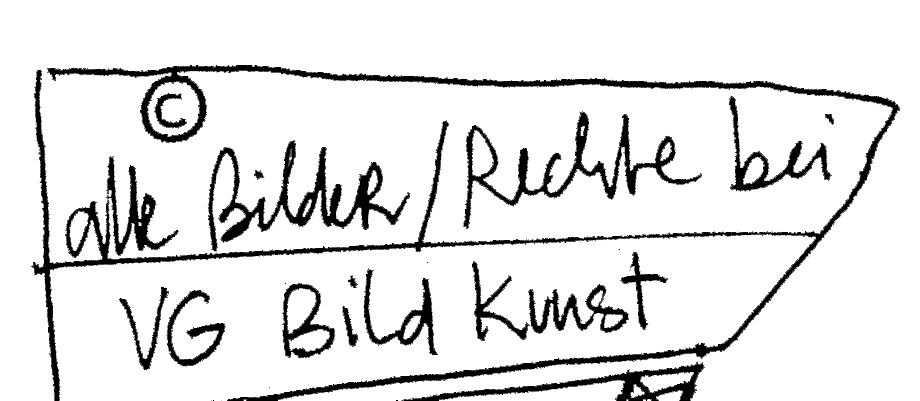 ©
alle Bilder/Rechte bei
VG Bild Kunst